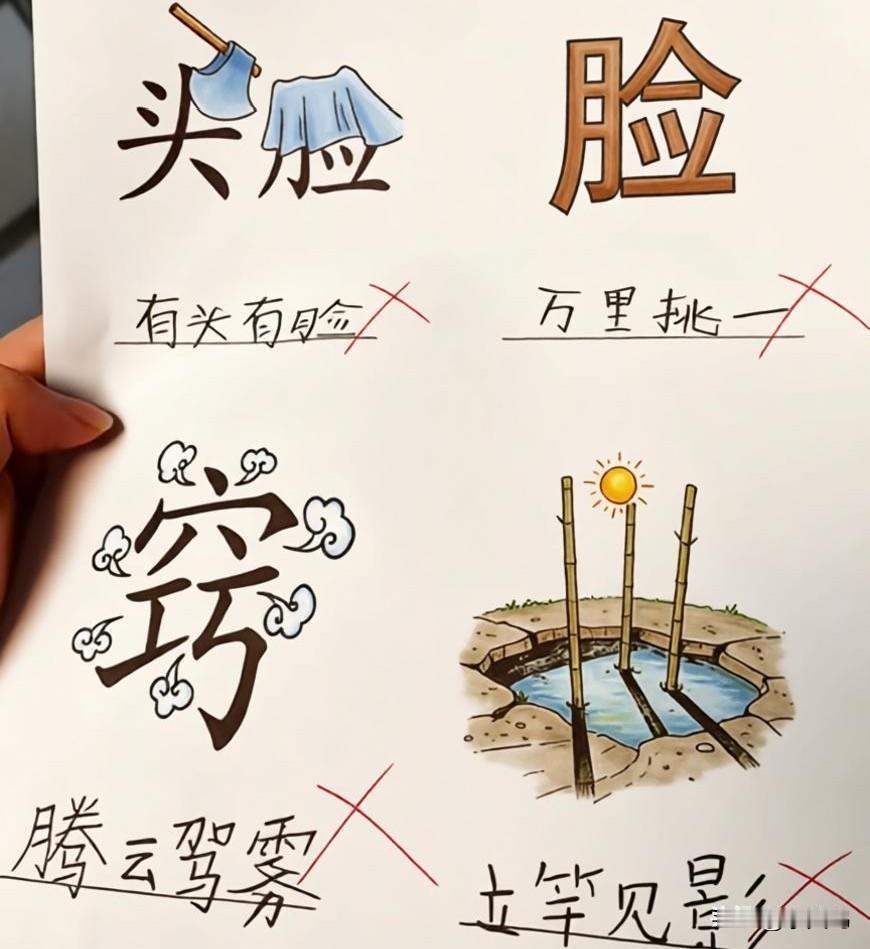 头脸
脸
有头有脸
万里挑一
窍
腾云驾雾
立竿见影